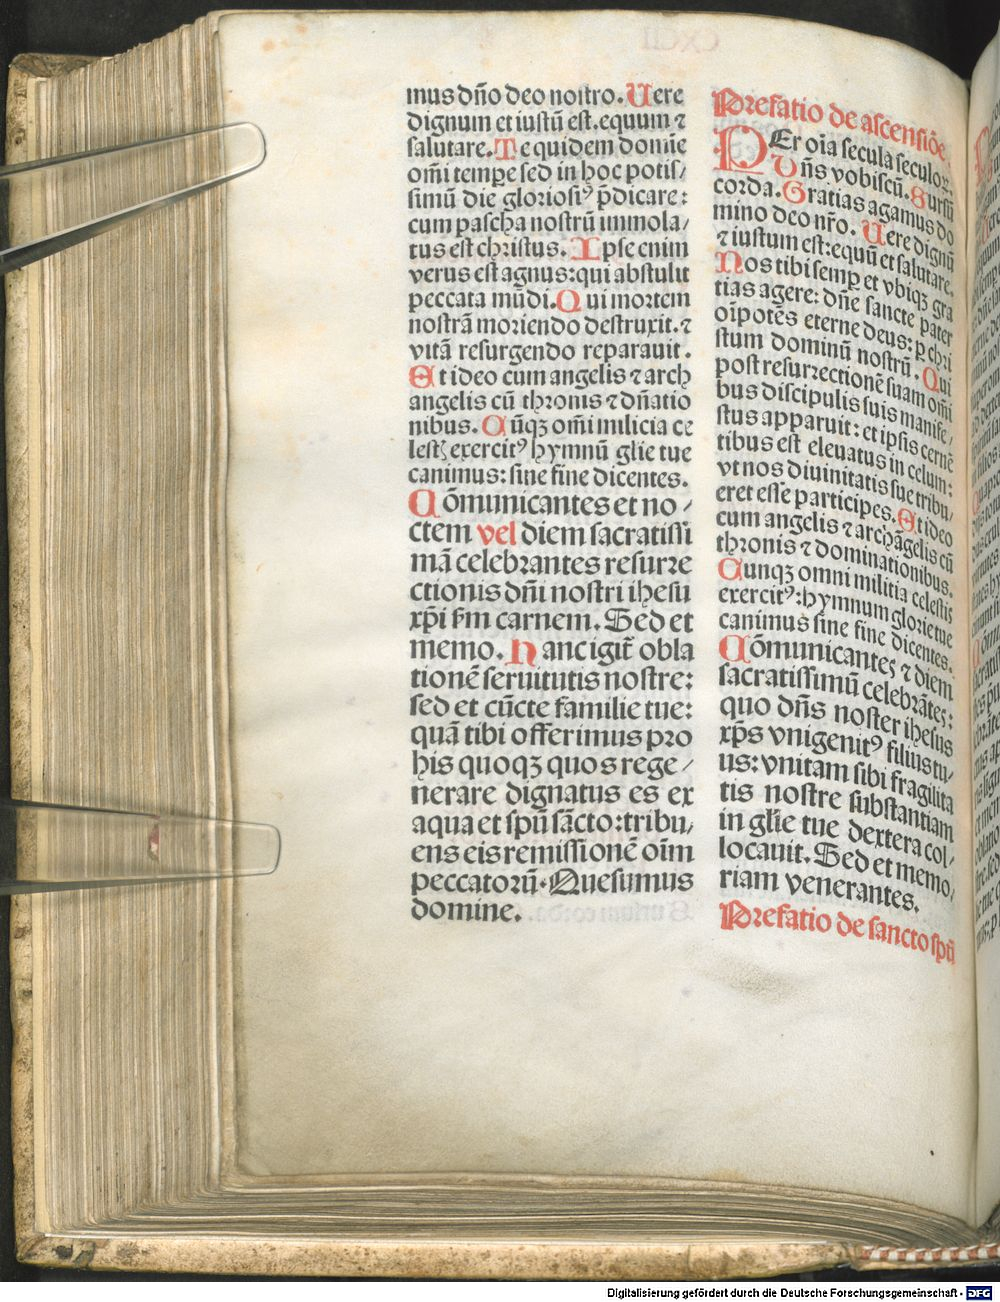 mus dño deo nostro. Uere
dignum et iustũ est. equum ⁊
salutare. Te quidem domĩe
om̃i tempe sed in hoc potis/
simũ die gloriosiꝰ p̃dicare:
cum pascha nostrũ immola/
tus est christus. Ipse enim
verus est agnus: qui abstulit
peccata mũdi. Qui mortem
nostrã moriendo destruxit. ⁊
vitã resurgendo reparauit.
Et ideo cum angelis ⁊ arch
angelis cũ thronis ⁊ dñatio
nibus. Cũqꝫ om̃i milicia ce
lestꝭ exercitꝰ hymnũ glie tue
canimus: sine fine dicentes.
Cõmunicantes et no/
ctem vel diem sacratissi
mã celebrantes resurre
ctionis dñi nostri ihesu
xp̃i ẜm carnem. Sed et
memo. Hanc igit̃ obla
tionẽ seruitutis nostre:
sed et cũcte familie tue:
quã tibi offerimus pro
his quoqꝫ quos rege/
nerare dignatus es ex
aqua et spũ sãcto: tribu/
ens eis remissionẽ oĩm
peccatorũ. Quesumus
domine.
Prefatio de ascensiõe.
PEr oĩa secula seculoꝝ.
Dñs vobiscũ. Sursũ
corda. Gratias agamus do
mino deo nr̃o. Uere dignũ
⁊ iustum est: equũ et salutare.
Nos tibi semꝑ et vbiqꝫ gra
tias agere: dñe sancte pater
oĩpotẽs eterne deus: ꝑ chri
stum dominũ nostrũ. Qui
post resurrectionẽ suam om̃i
bus discipulis suis manife/
stus apparuit: et ipsis cernẽ
tibus est eleuatus in celum:
vt nos diuinitatis sue tribu/
eret esse participes. Et ideo
cum angelis ⁊ archãgelis cũ
thronis ⁊ dominationibus.
Cunqꝫ omni militia celestis
exercitꝰ: hymnum glorie tue
canimus sine fine dicentes.
Cõmunicantes ⁊ diem
sacratissimũ celebrãtes:
quo dñs noster ihesus
xp̃s vnigenitꝰ filius tu/
us: vnitam sibi fragilita
tis nostre substantiam
in glie tue dextera col/
locauit. Sed et memo/
riam venerantes.
Prefatio de sancto spũ
Digitalisierung gefördert durch die Deutsche Forschungsgemeinschaft - DFG